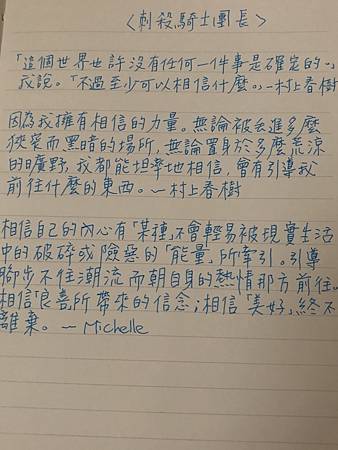 〈刺殺騎士團長〉
「這個世界也許沒有任何一件事是確定的~」
我說。「不過至少可以相信什麼。」-村上春樹
因為我擁有相信的力量。無論被丟進多麼
狹窄而黑暗的場所,無論置身於多麼荒涼
的曠野,我都能坦率地相信,會有引導我
前往什麼的東西。-村上春樹
相信自己的內心有「某種」不會輕易被現實生活
中的破碎或險惡的「能量」所牽引。引導
腳步不往潮流而朝自身的熱情那方前往。
相信「良善」所帶來的信念;相信「美好」終不
離棄。- Michelle